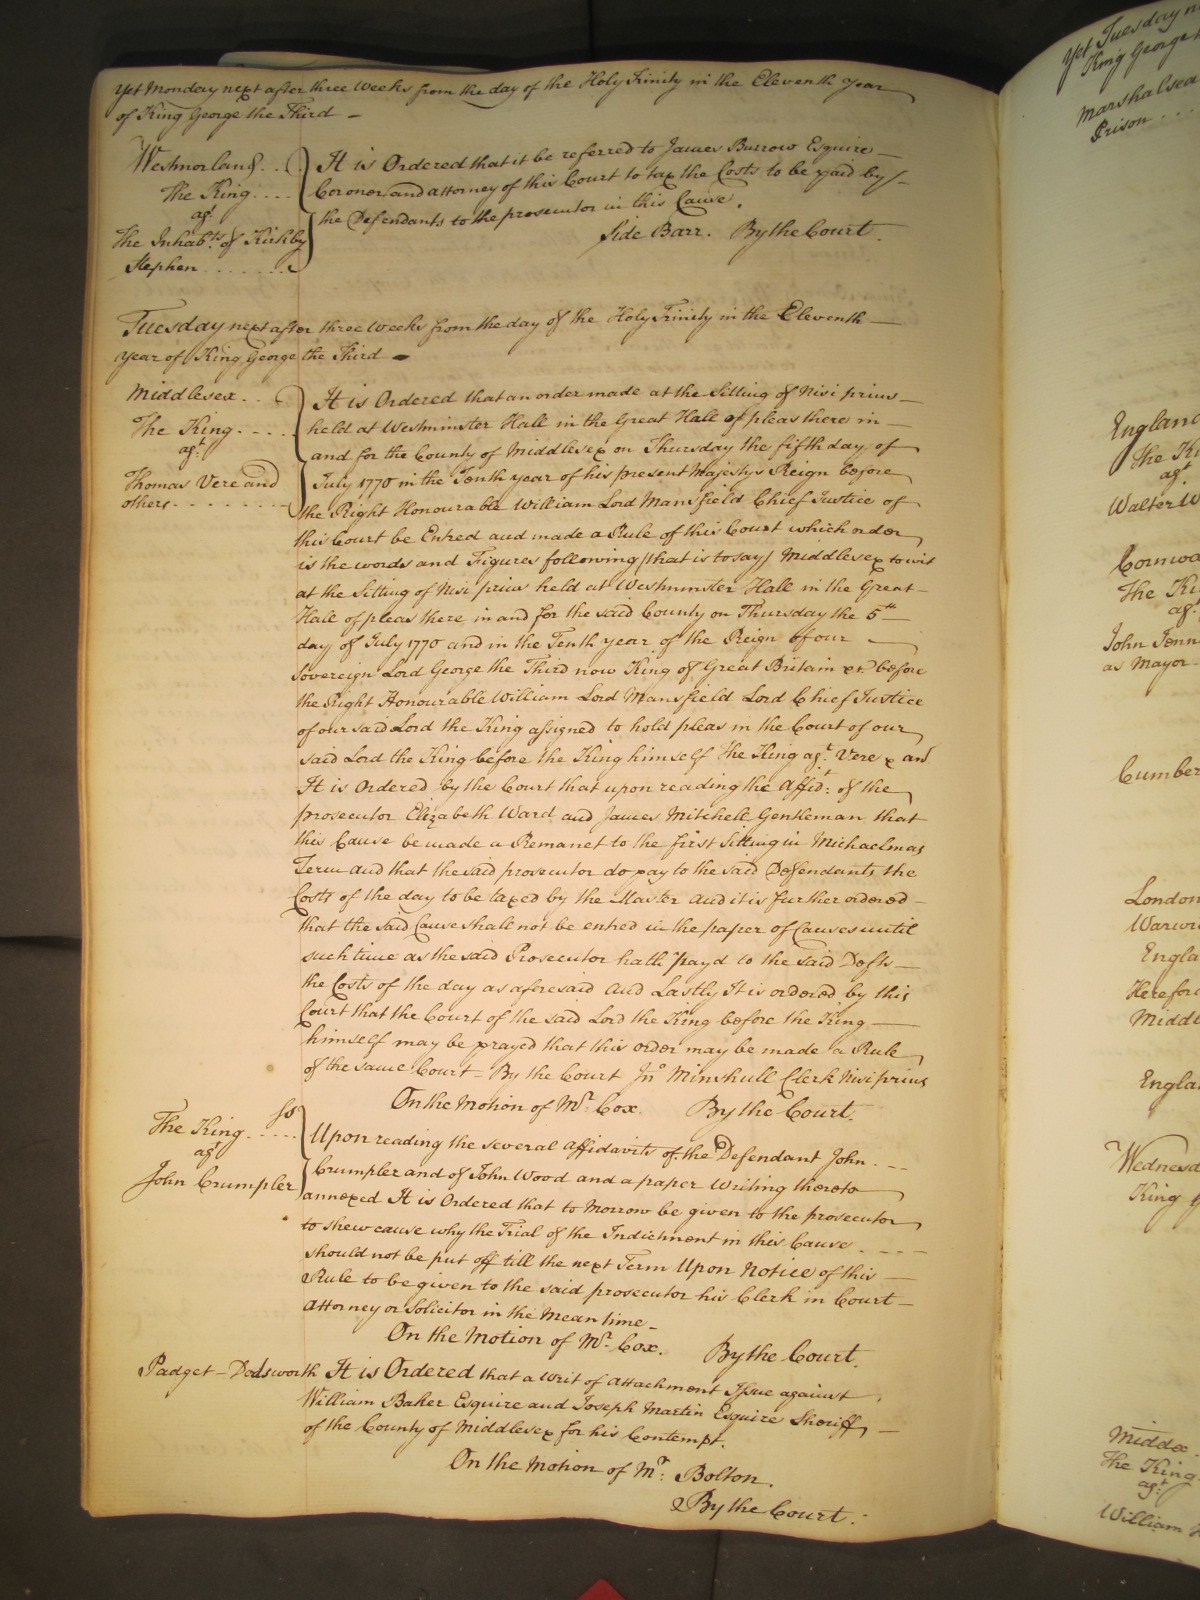 Yet Monday next after three Weeks from the day of the Holy Trinity in the Eleventh Year
of King George the Third
Westmorland
The King
agt
The Inhabts of Kirkby
Stephen
It is Ordered that it be referred to James Burrow Esquire
Coroner and attorney of this Court to tax the Costs to be paid by
the Defendants to the prosecutor in this Cause.
Side Barr. By the Court.
Tuesday next after three Weeks from the day of the Holy Trinity in the Eleventh
year of King George the Third
Middlesex
The King
agt
Thomas Vere and
others
It is Ordered that an order made at the Sitting of Nisi prius
held at Westminster Hall in the Great Hall of pleas there in
and for the County of Middlesex on Thursday the fifth day of
July 1770 in the Tenth year of his present Majestys Reign before
the Right Honourable William Lord Mansfield Chief Justice of
this Court be Entred and made a Rule of this Court which order
is the words and Figures following (that is to say) Middlesex to wit
at the Sitting of Nisi prius held at Westminster Hall in the Great
Hall of pleas there in and for the said County on Thursday the 5th
day of July 1770 and in the Tenth year of the Reign of our
Sovereign Lord George the Third now King of Great Britain &c. before
the Right Honourable William Lord Mansfield Lord Chief Justice
of our said Lord the King assigned to hold pleas in the Court of our
said Lord the King before the King himself The King agt. Vere & an
It is Ordered by the Court that upon reading the Affidt: of the
prosecutor Elizabeth Ward and James Mitchell Gentleman that
this Cause be made a Remanet to the first Sitting in Michaelmas
Term and that the said prosecutor do pay to the said Defendants the
Costs of the day to be taxed by the Master and it is further ordered
that the said Cause shall not be entred in the paper of Causes until
such time as the said Prosecutor hath payd to the said Defts
the Costs of the day as aforesaid and Lastly It is ordered by this
Court that the Court of the said Lord the King before the King
himself may be prayed that this order may be made a Rule
of the same Court By the Court Jno Minshull Clerk Nisi prius
On the Motion of Mr. Cox. By the Court.
So
The King
agt
John Crumpler
Upon reading the several affidavits of the Defendant John
Crumpler and of John Wood and a paper Writing thereto
annexed It is Ordered that to Morrow be given to the prosecutor
to shew cause why the Trial of the Indictment in this Cause
should not be put off till the next Term Upon Notice of this
Rule to be given to the said prosecutor his Clerk in Court
Attorney or Solicitor in the Mean time
On the Motion of Mr. Cox. By the Court.
Padget - Dodsworth It is Ordered that a Writ of Attachment Issue against
William Baker Esquire and Joseph Martin Esquire Sheriff
of the County of Middlesex for his Contempt.
On the Motion of Mr: Bolton.
By the Court.
Yet Tuesday
King George
Marshalsea
Prison
England
The
agt
Walter
The
agt.
John
as Mayor
London
Wednesd
King
Middx
The King
agt
William